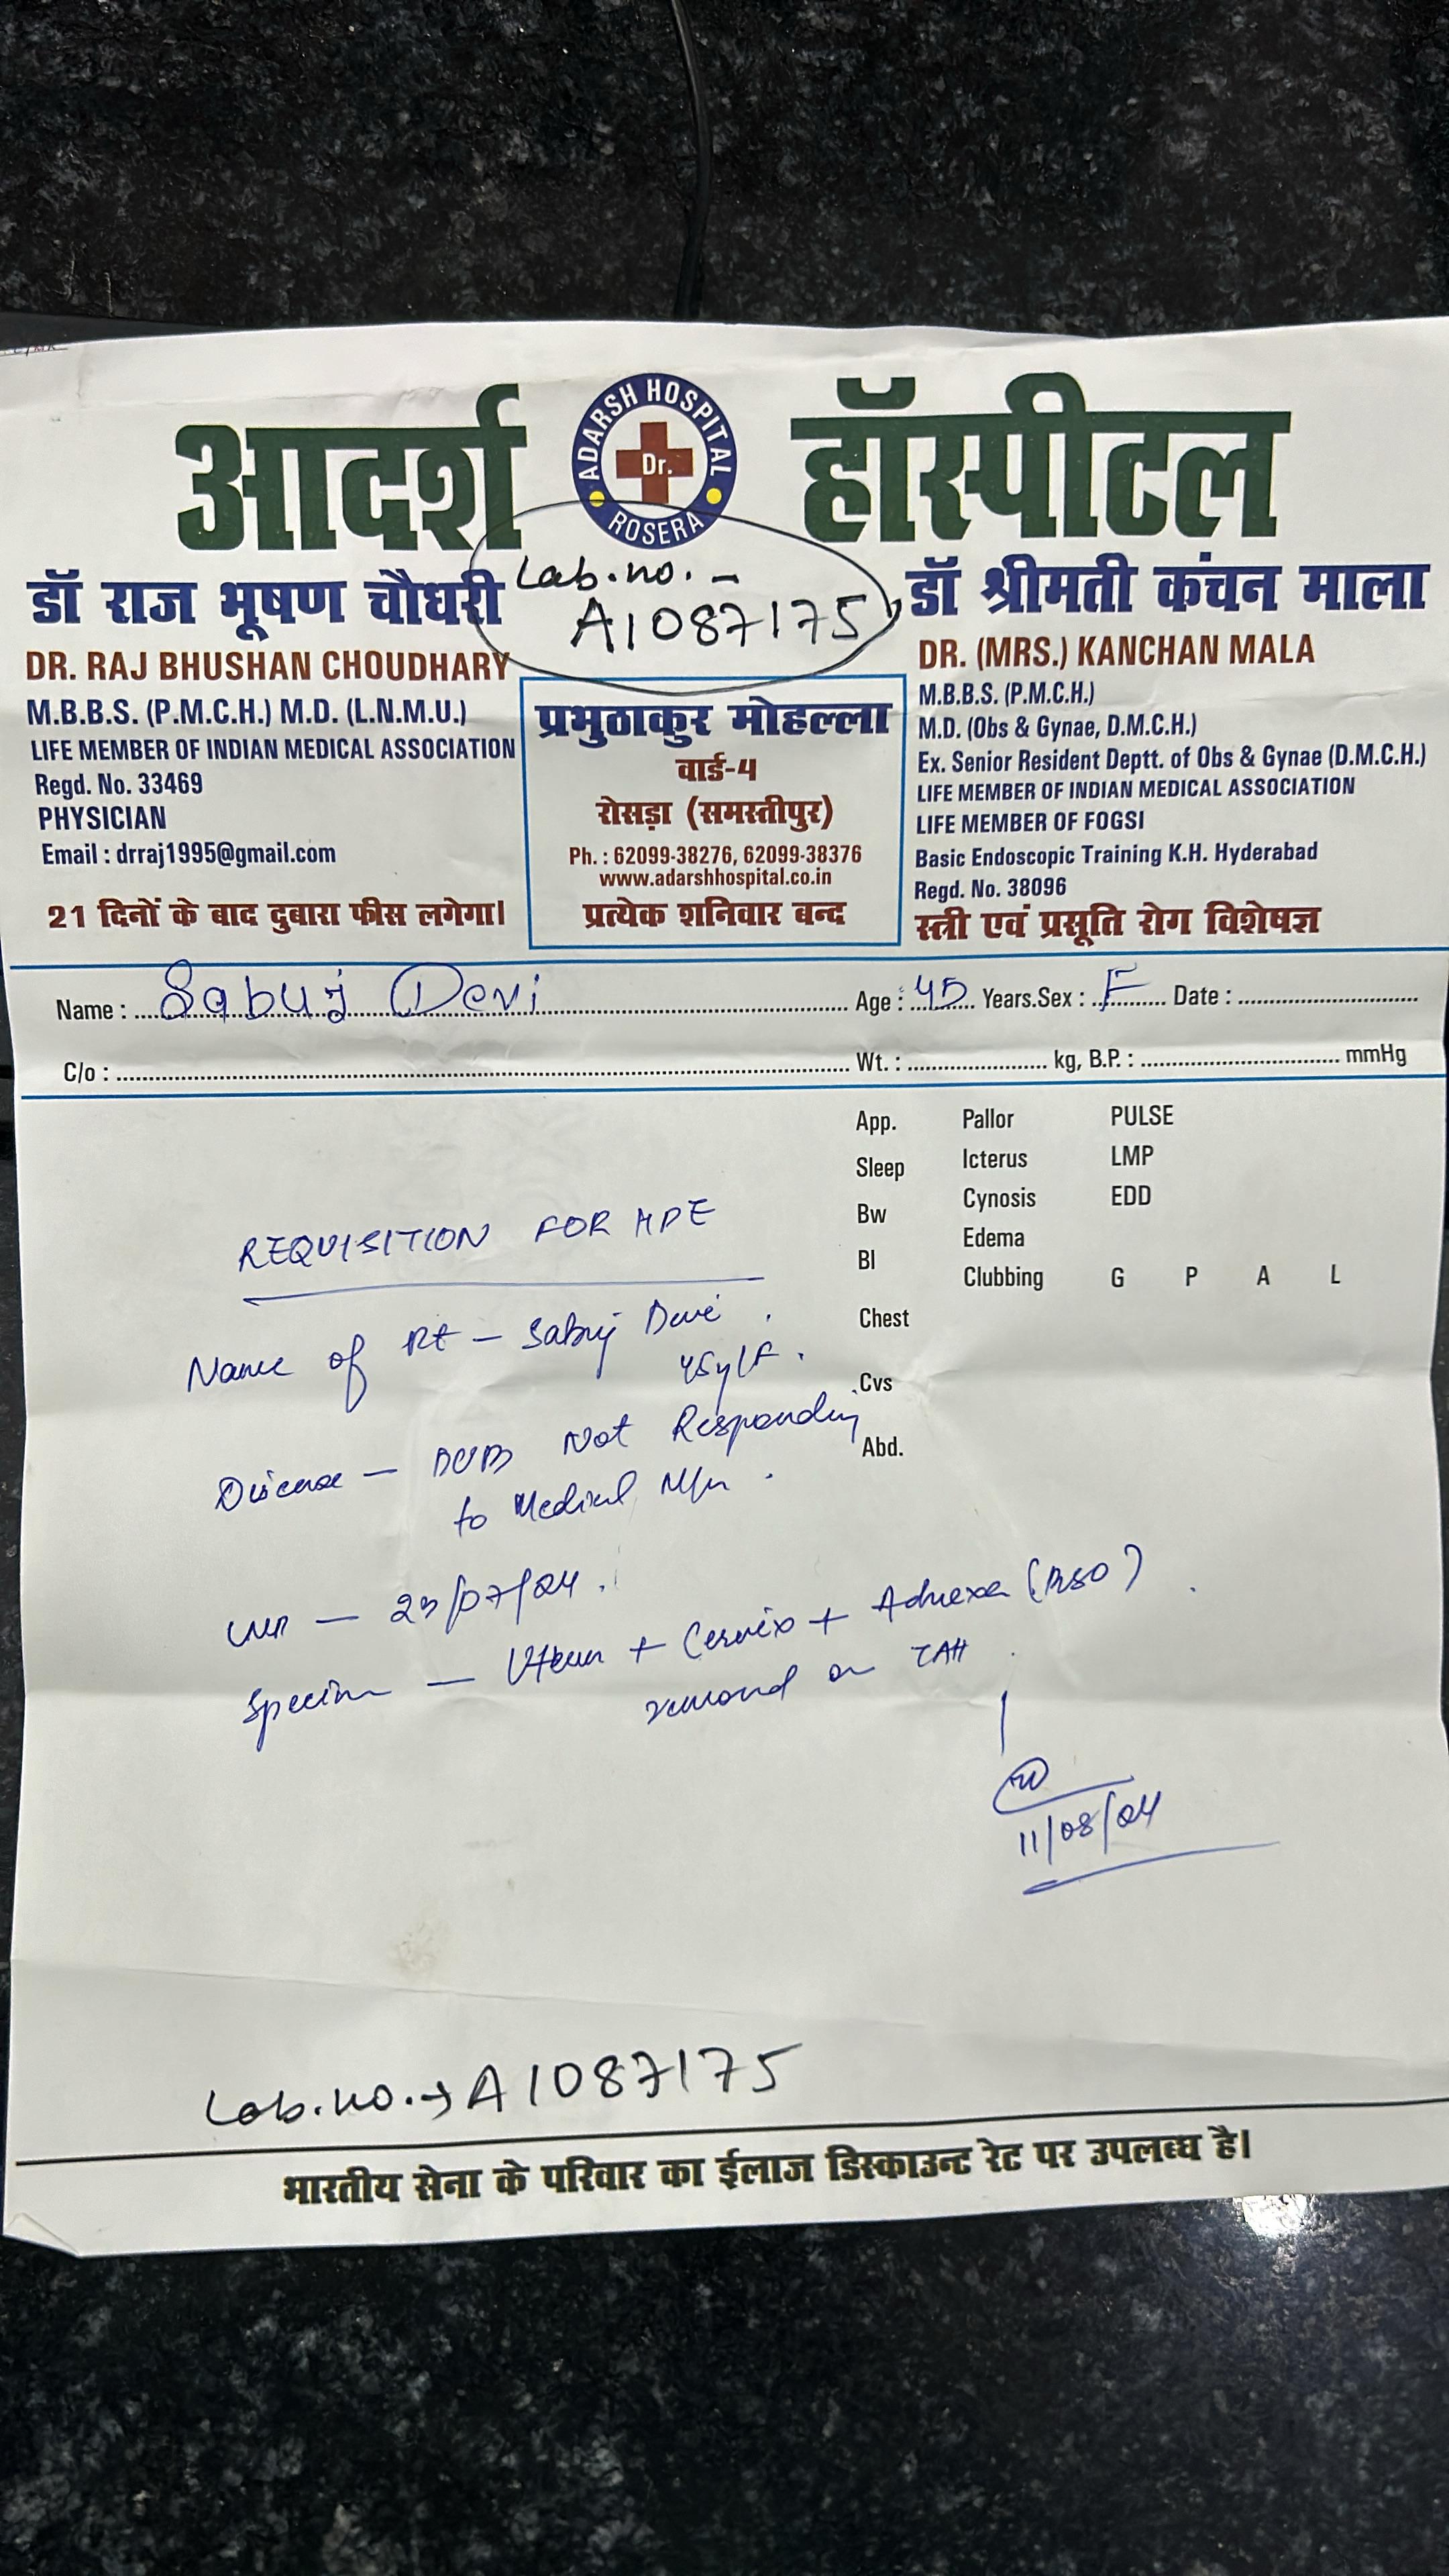 आदर्श हॉस्पीटल
ADARSH HOSPITAL
Dr.
ROSERA
Lab.no. -
A1087175
डॉ राज भूषण चौधरी
DR. RAJ BHUSHAN CHOUDHARY
M.B.B.S. (P.M.C.H.) M.D. (L.N.M.U.)
LIFE MEMBER OF INDIAN MEDICAL ASSOCIATION
Regd. No. 33469
PHYSICIAN
Email : drraj1995@gmail.com
21 दिनों के बाद दुबारा फीस लगेगा।
प्रभुठाकुर मोहल्ला
वार्ड-4
रोसड़ा (समस्तीपुर)
Ph. : 62099-38276, 62099-38376
www.adarshhospital.co.in
प्रत्येक शनिवार बन्द
डॉ श्रीमती कंचन माला
DR. (MRS.) KANCHAN MALA
M.B.B.S. (P.M.C.H.)
M.D. (Obs & Gynae, D.M.C.H.)
Ex. Senior Resident Deptt. of Obs & Gynae (D.M.C.H.)
LIFE MEMBER OF INDIAN MEDICAL ASSOCIATION
LIFE MEMBER OF FOGSI
Basic Endoscopic Training K.H. Hyderabad
Regd. No. 38096
स्त्री एवं प्रसूति रोग विशेषज्ञ
Name : Sabuj Devi Age : 45 Years. Sex : F Date :
C/o : Wt. : kg, B.P. : mmHg
App. Pallor PULSE
Sleep Icterus LMP
Bw Cynosis EDD
Bl Edema
Clubbing G P A L
Chest
Cvs
Abd.
REQUISITION FOR HPE
Name of Pt - Sabuj Devi
45y/F.
Disease - DUB Not Responding
to Medical
LMP - /07/24.
Specimen - Uterus + Cervix + Adnexa (BSO)
removed on TAH
11/08/24
Lab.no. → A1087175
भारतीय सेना के परिवार का ईलाज डिस्काउन्ट रेट पर उपलब्ध है।